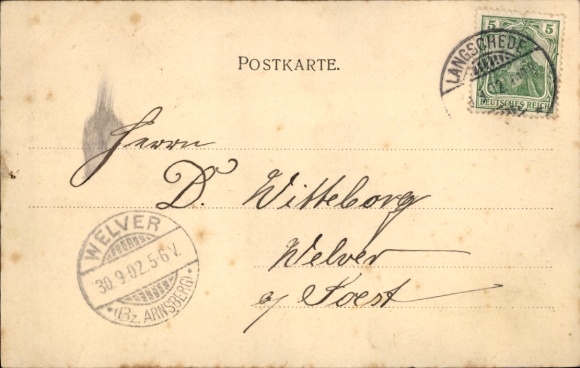 POSTKARTE.
5 5
DEUTSCHES REICH
LANGSCHEDE
Herrn
D. Witteborg
Welver
a/ Soest
WELVER
30.9.02.5-6V.
*(Bz. ARNSBERG)*